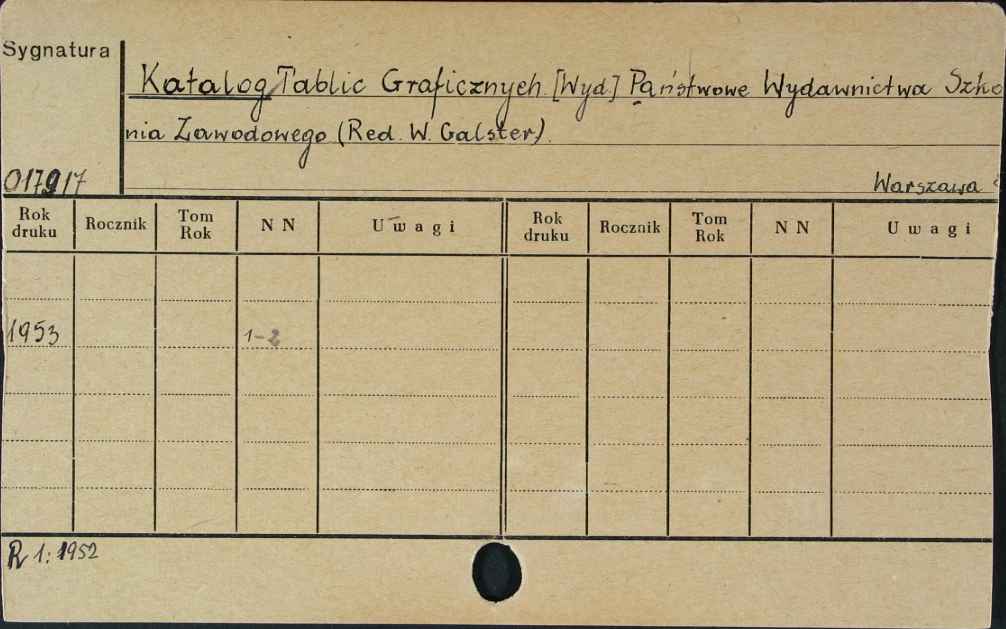 Sygnatura
Katalog Tablic Graficznych. [Wyd.] Państwowe Wydawnictwa Szko
nia Zawodowego (Red. W. Galster).
017917
Warszawa
Rok druku Rocznik Tom Rok N N Uwagi Rok druku Rocznik Tom Rok N N Uwagi
1953 1-2
R 1: 1952